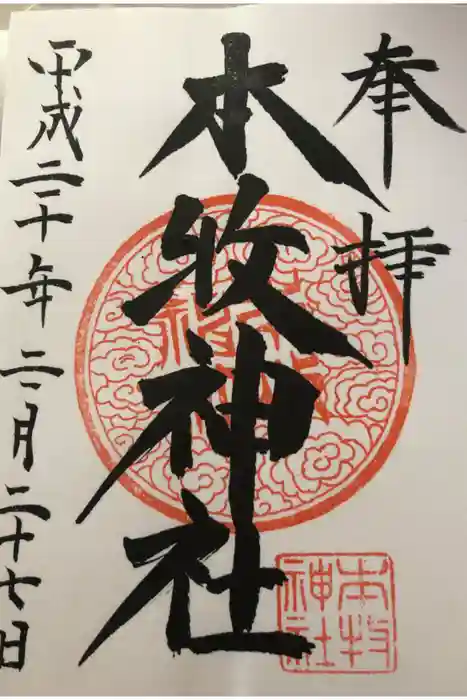 奉拝
本牧神社
平成二十年二月二十七日
本牧
神社